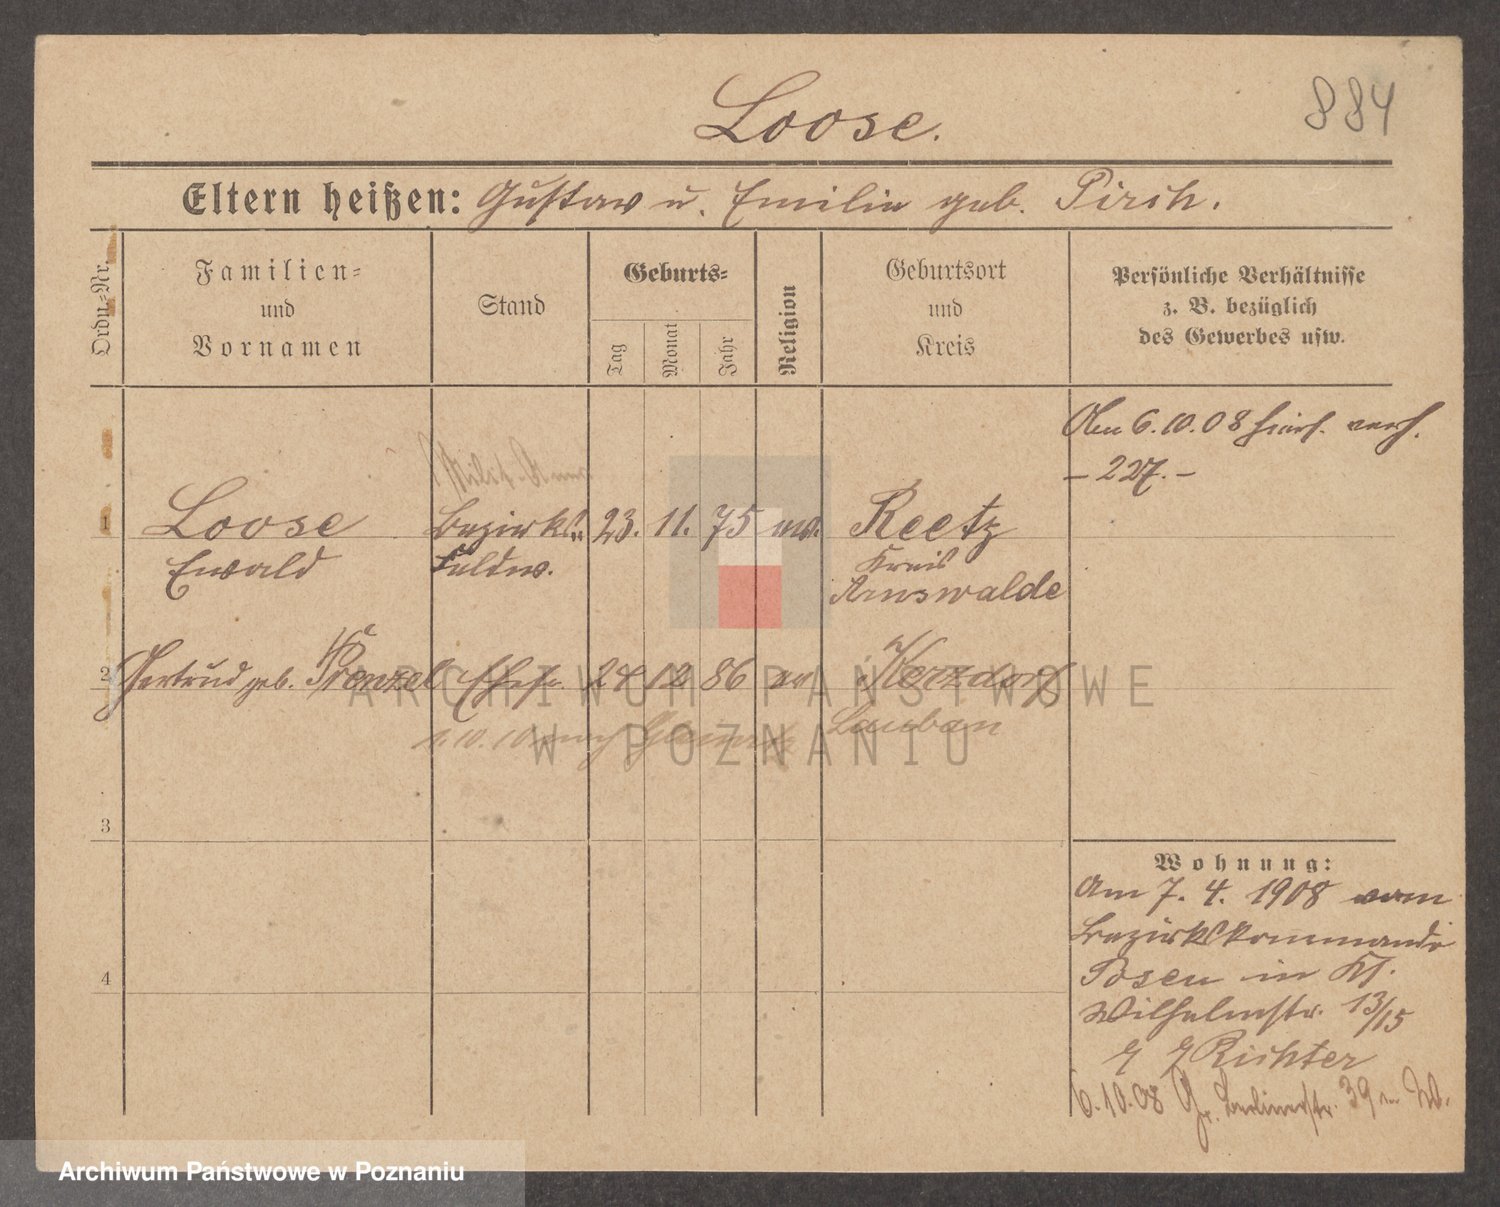 884
Loose.
Eltern heißen: Gustav u. Emilie geb. Pirch.
Ordn=Nr.
Familien=
und
Vornamen
Stand
Geburts=
Tag
Monat
Jahr
Religion
Geburtsort
und
Kreis
Persönliche Verhältnisse
z. B. bezüglich
des Gewerbes usw.
Am 6.10.08 hier verh.
- 227. -
Milit.
1 Loose Bezirks 23. 11. 75 ev. Reetz
Ewald Feldw. Kreis
Arnswalde
2 Gertrud geb. Prenzel Ehefr. 24 12 86 ev Kerzdorf
1.10.10 nach Lauban
3
4
Wohnung:
Am 7. 4. 1908 vom
Bezirkskommando
Posen in Kl.
Wilhelmstr. 13/15
Richter
6.10.08 Gr. Berlinerstr. 39 W.
ARCHIWUM PAŃSTWOWE
W POZNANIU
Archiwum Państwowe w Poznaniu